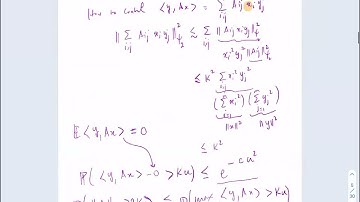 How to control ⟨y, Ax⟩ = Σ_{ij} A_{ij} x_i y_j
‖ Σ_{ij} A_{ij} x_i y_j ‖²_{ψ₂} ≲ Σ_{ij} ‖ A_{ij} x_i y_j ‖²_{ψ₂}
x_i² y_j² ‖A_{ij}‖²_{ψ₂}
≤ K² Σ_{ij} x_i² y_j²
(Σ x_i²) (Σ y_j²)
‖x‖² ‖y‖²
𝔼 ⟨y, Ax⟩ = 0
≤ K²
ℙ( ⟨y, Ax⟩ − 0 > Ku ) ≤ e^{−cu²}